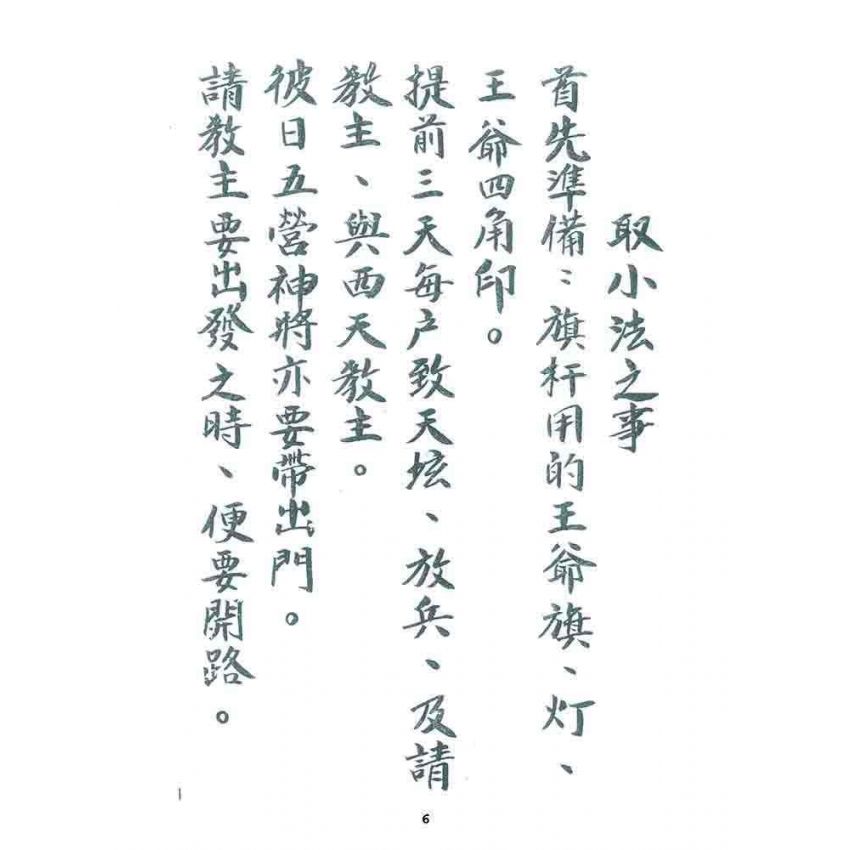 取小法之事
首先準備：旗杆用的王爺旗、灯、
王爺四角印。
提前三天每户致天坛、放兵、及請
教主、與西天教主。
彼日五營神將亦要帶出門。
請教主要出發之時、便要開路。
6